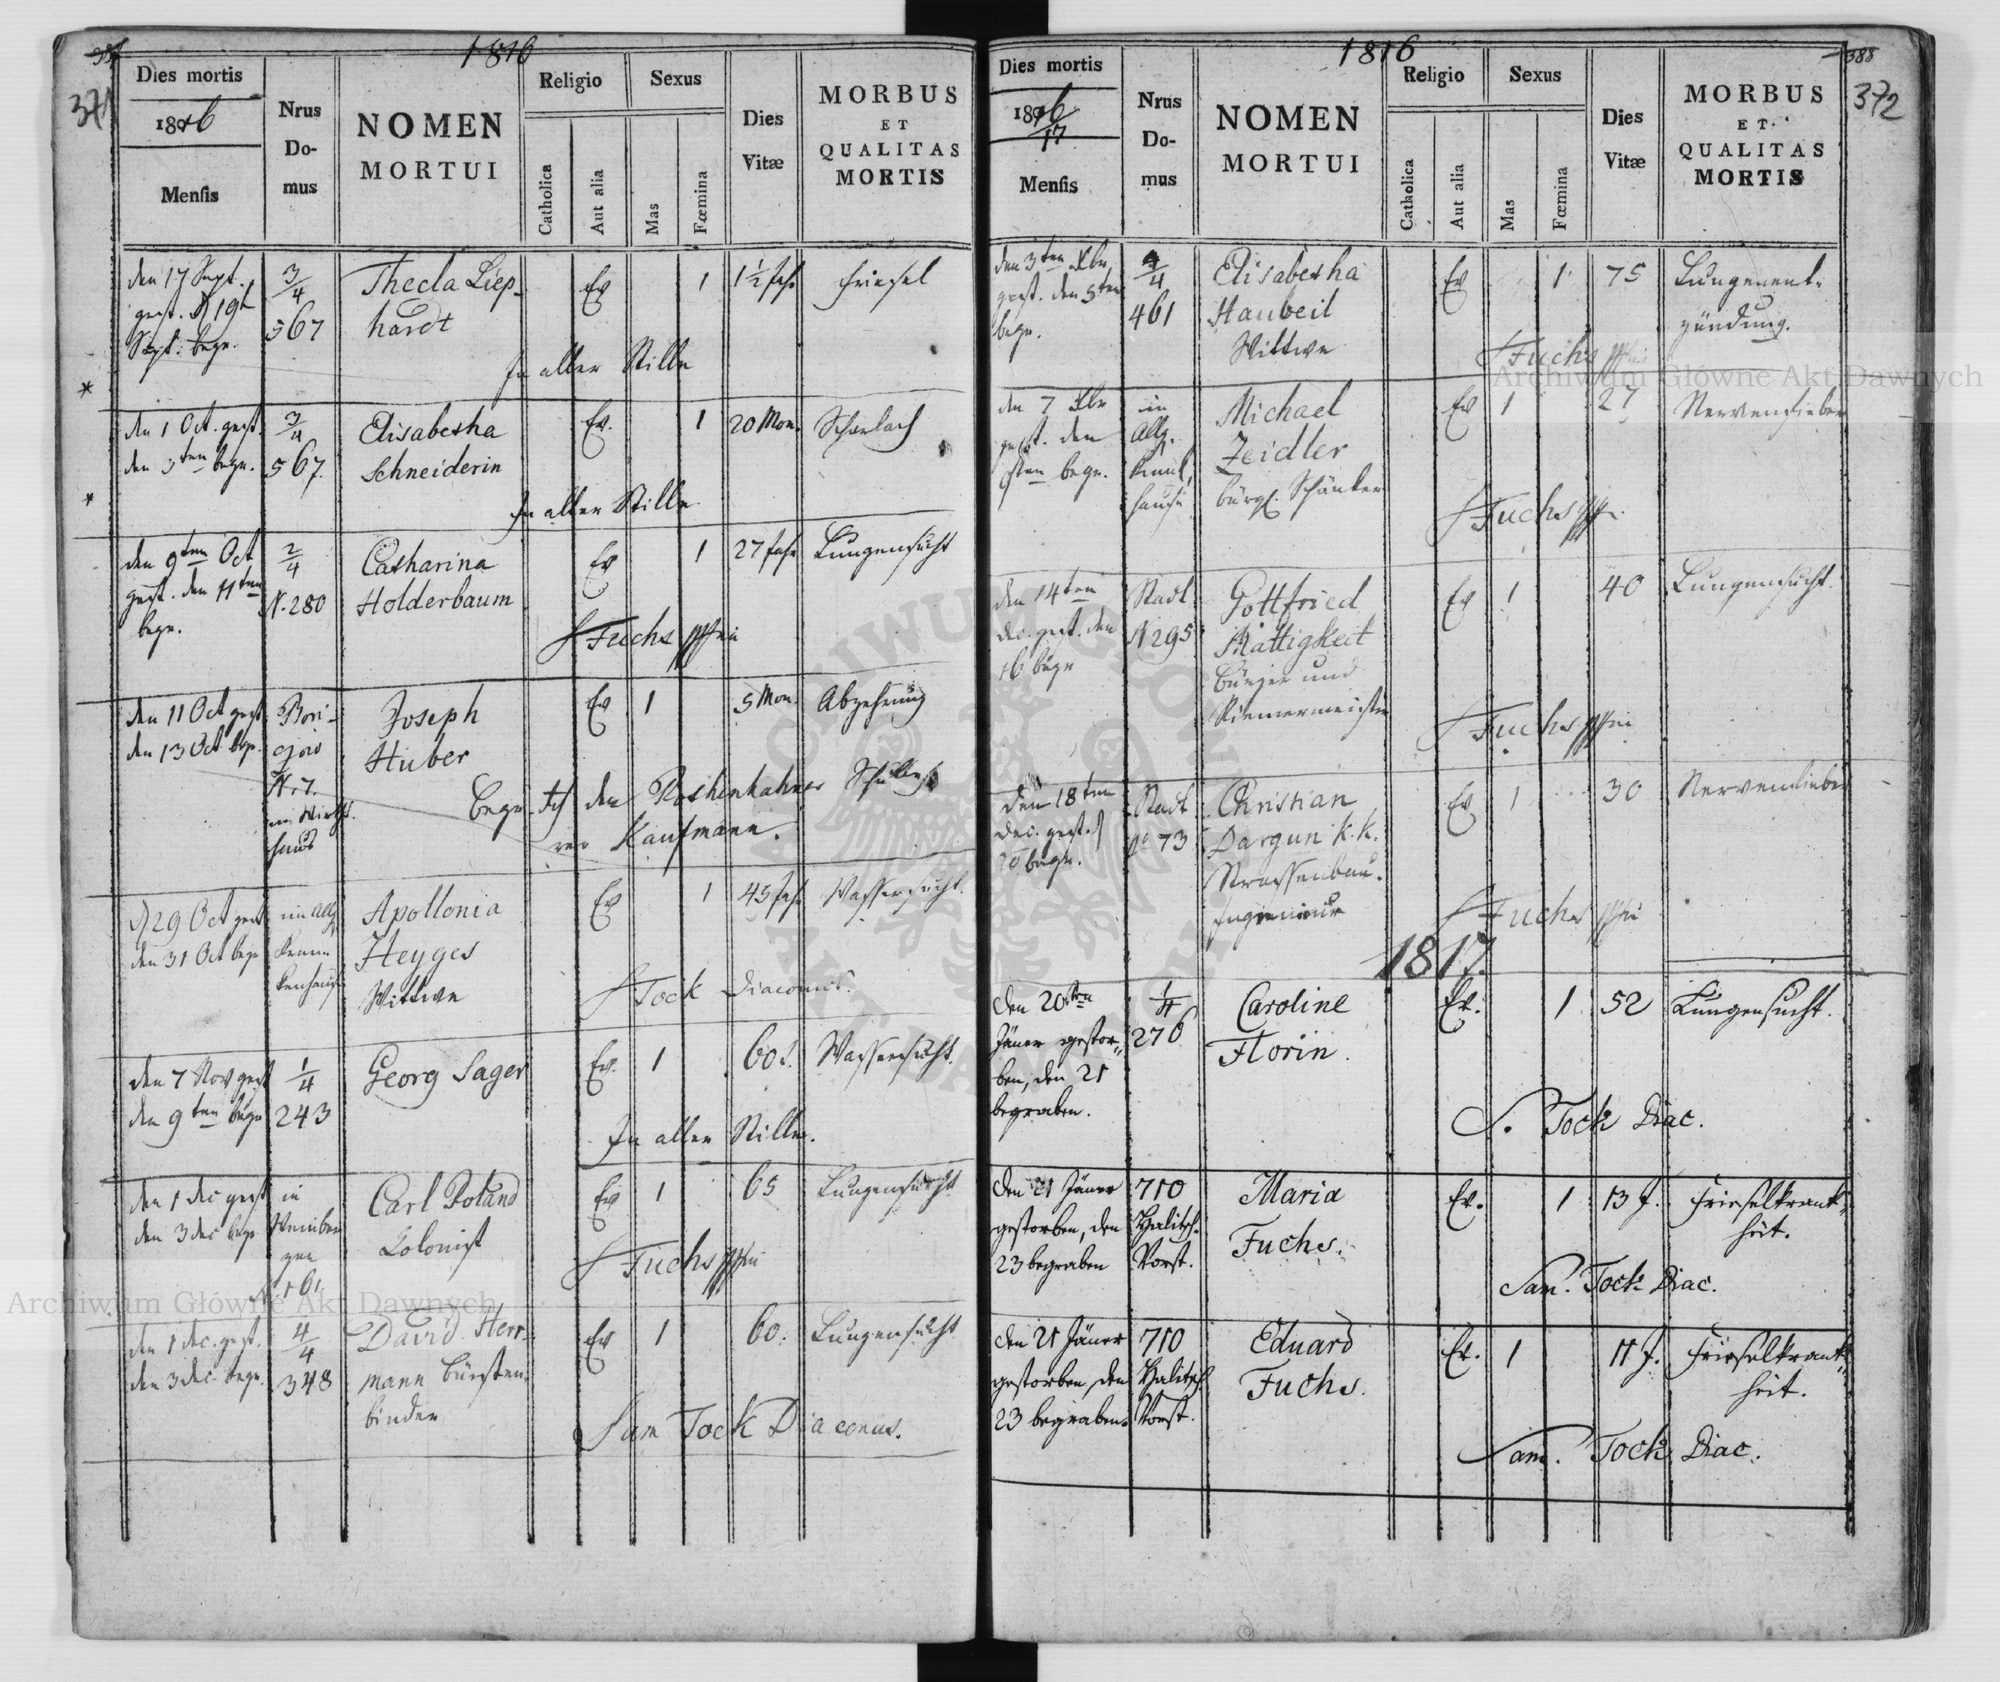 371
1816
Dies mortis
1816
Mensis
Nrus
Do-
mus
NOMEN
MORTUI
Religio
Catholica
Aut alia
Sexus
Mas
Fœmina
Dies
Vitæ
MORBUS
ET
QUALITAS
MORTIS
den 17 Sept.
gest. d 19t
Sept. begr.
3/4
567
Thecla Liep-
hardt
Ev
1
1½ Jahr
Friesel
In aller Stille
*
den 1 Oct. gest.
den 3ten begr.
3/4
567.
Elisabetha
Schneiderin
Ev.
1
20 Mon.
Scharlach
In aller Stille
*
den 9ten Oct
gest. den 11ten
begr.
2/4
N. 280
Catharina
Holderbaum
Ev
1
27 Jahr
Lungensucht
Fuchs
den 11 Oct gest
den 13 Oct begr.
N. 7.
im Wirths.
haus
Joseph
Huber
Ev
1
5 Mon.
Abzehrung
Kaufmann.
d 29 Oct gest
den 31 Oct begr
im Allg
kenhause
Apollonia
Heyges
Wittwe
Ev
1
43 Jahr
Wassersucht.
Tock Diaconus.
den 7 Nov gest
den 9ten begr
1/4
243
Georg Sager
Ev.
1
60
Wassersucht.
In aller Stille.
den 1 Dec gest
den 3 Dec begr
in
Weinber
gen
N. 161.
Carl Poland
Colonist
Ev
1
65
Lungensucht
Fuchs
den 1 Dec. gest.
den 3 Dec. begr.
4/4
348
David Herr-
mann Bürsten-
binder
Ev
1
60.
Lungensucht
Sam Tock Diaconus.
388
372
1816
Dies mortis
1816/17
Mensis
Nrus
Do-
mus
NOMEN
MORTUI
Religio
Catholica
Aut alia
Sexus
Mas
Fœmina
Dies
Vitæ
MORBUS
ET
QUALITAS
MORTIS
den 3ten Xbr
gest. den 5ten
begr.
4/4
461
Elisabetha
Haubeil
Wittwe
Ev
1
75
Lungenent-
zündung.
Fuchs
den 7 Xbr
gest. den
9ten begr.
im
Allg.
hause
Michael
Zeidler
bürgl. Schänker
Ev
1
27
Nervenfieber
Fuchs
den 14ten
Dec. gest. den
16 begr
Stadt
N 295
Gottfried
Mattigkeit
Bürger und
Riemermeister
Ev
1
40
Lungensucht.
Fuchs
den 18ten
Dec. gest. d
20 begr.
Stadt
No 73
Christian
Dargun k. k.
Strassenbau-
Ingenieur
Ev
1
30
Nervenfieber
Fuchs
1817.
Den 20ten
Jäner gestor-
ben, den 21
begraben.
1/4
276
Caroline
Florin.
Ev.
1
52
Lungensucht.
S. Tock Diac.
Den 21 Jäner
gestorben, den
23 begraben
710
Halitsch.
Vorst.
Maria
Fuchs.
Ev.
1
13 J.
Frieselkrank-
heit.
Sam. Tock Diac.
Den 21 Jäner
gestorben, den
23 begraben.
710
Halitsch
Vorst.
Eduard
Fuchs.
Ev.
1
11 J.
Frieselkrank-
heit.
Sam. Tock Diac.
Archiwum Główne Akt Dawnych
Archiwum Główne Akt Dawnych